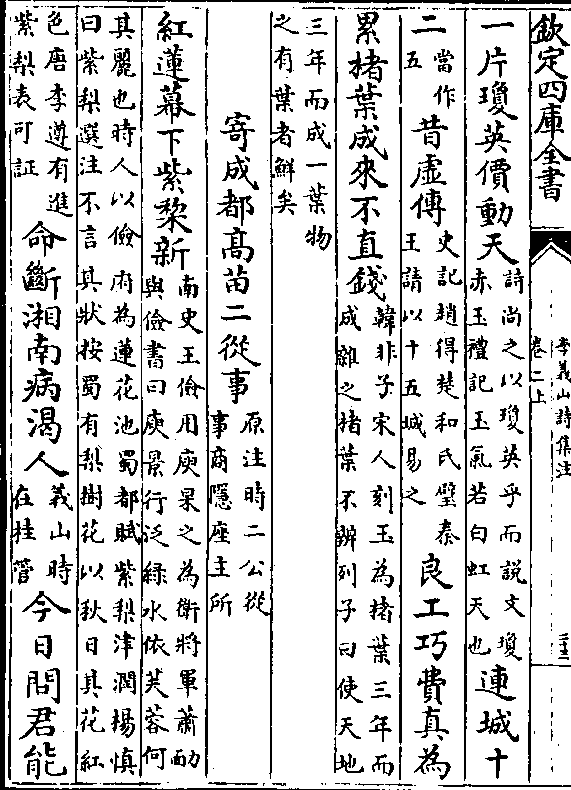 欽定四庫全書
李義山詩集注
卷二上
一片瓊英價動天
詩尚之以瓊英乎而説文瓊
赤玉禮記玉氣若白虹天也
連城十
二
當作
五
昔虛傳
史記趙得楚和氏璧秦
王請以十五城易之
良工巧費真為
累楮葉成來不直錢
韓非子宋人刻玉為楮葉三年而
成雜之楮葉不辨列子曰使天地
三年而成一葉物
之有葉者鮮矣
寄成都髙苗二從事
原注時二公從
事商隱座主所
紅蓮幕下紫棃新
南史王儉用庾杲之為衛將軍蕭勔
與儉書曰庾景行泛緑水依芙蓉何
其麗也時人以儉府為蓮花池蜀都賦紫梨津潤楊慎
曰紫梨選注不言其狀按蜀有梨樹花以秋日其花紅
色唐李遵有進
紫梨表可証
命斷湘南病渴人
義山時
在桂管
今日問君能